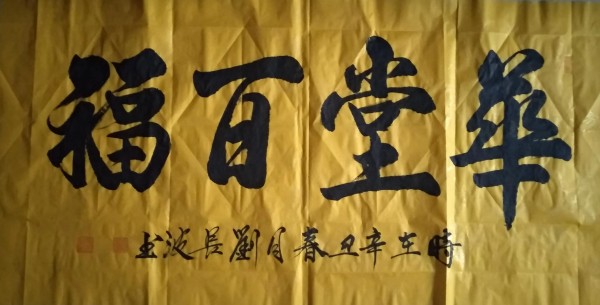 華堂百福
時在辛丑春月劉長波書